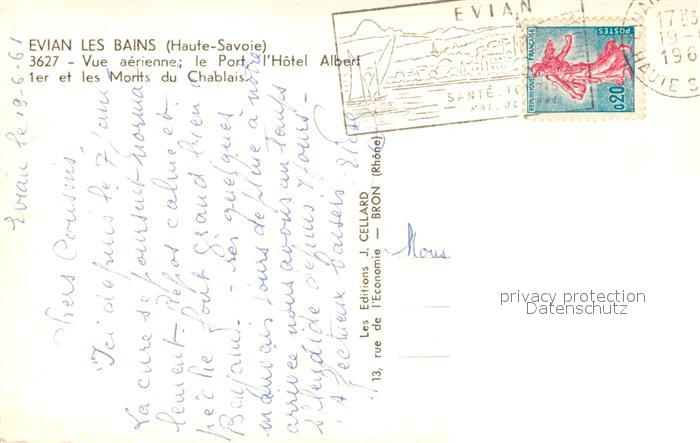 EVIAN LES BAINS (Haute-Savoie)
3627 - Vue aérienne; le Port, l'Hôtel Albert
1er et les Monts du Chablais
EVIAN
SANTÉ
17H3
19-
196
HAUTE S
REPUBLIQUE FRANÇAISE
POSTES
0,20
Evian le 19.6.61
Chers Cousins,
Ici depuis le 7 Juin
La cure se poursuit norma
lement. Repos calme et
pêche font grand bien à
Benjamin. quelques
mauvais jours de pluie à notre
arrivée nous avons un temps
splendide depuis 7 jours -
Affectueux baisers
Les Editions J. CELLARD
13, rue de l'Economie — BRON (Rhône)
privacy protection
Datenschutz